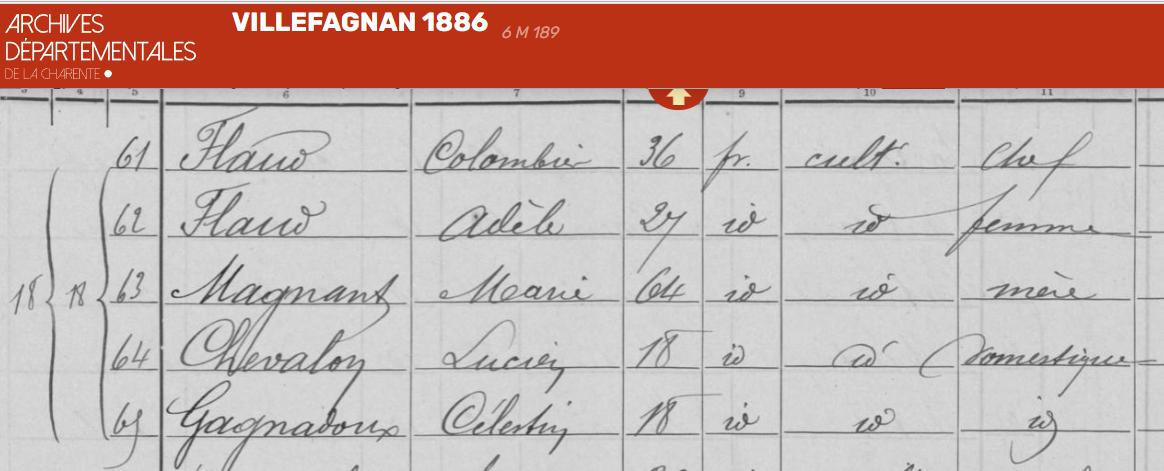 ARCHIVES
DÉPARTEMENTALES
DE LA CHARENTE
VILLEFAGNAN 1886 6 M 189
3 4 5 6 7 9 10 11
61 Flaud Colombier 36 fr. cult. Chef
62 Flaud Adèle 27 id id femme
18 18 63 Magnant Marie 64 id id mère
64 Chevalon Lucien 18 id id domestique
65 Gagnadoux Célestin 18 id id id